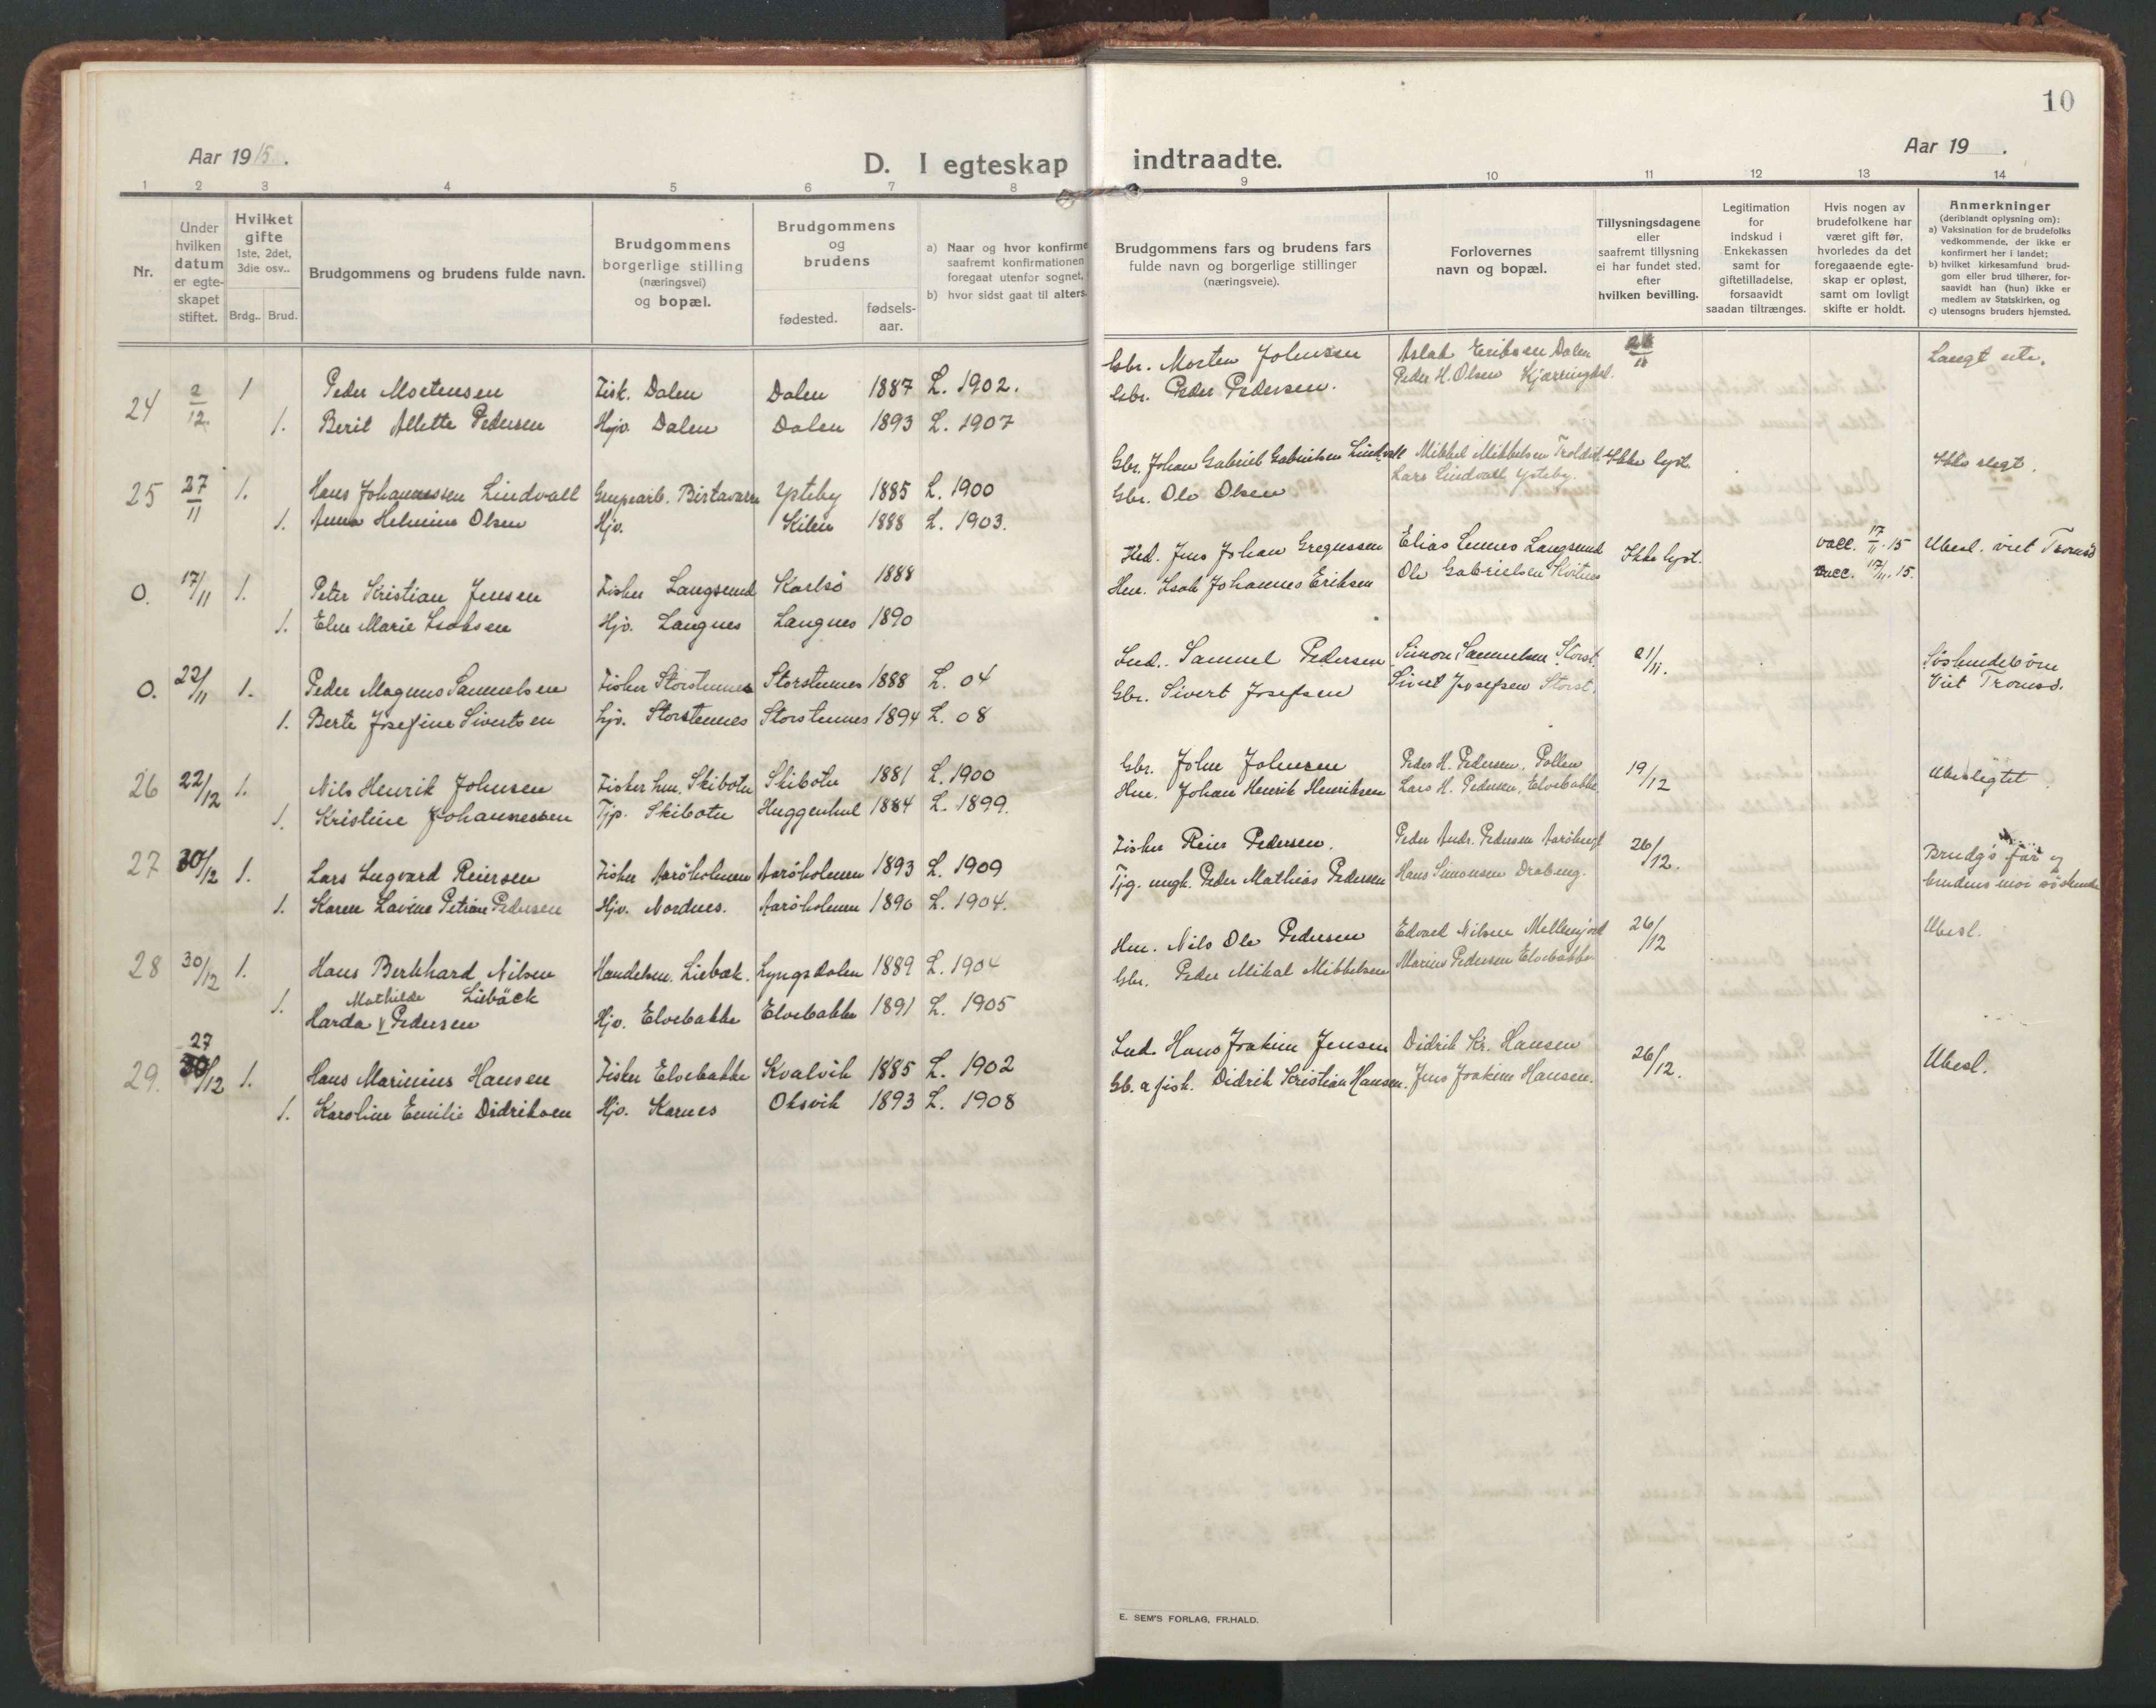 10
Aar 1915.
D. I egteskap indtraadte.
Aar 19 .
1 2 3 4 5 6 7 8 9 10 11 12 13 14
Nr.
Under hvilken datum er egteskapet stiftet.
Hvilket gifte
1ste, 2det, 3die osv..
Brdg.. Brud.
Brudgommens og brudens fulde navn.
Brudgommens borgerlige stilling (næringsvei) og bopæl.
Brudgommens og brudens
fødested.
fødsels-aar.
a) Naar og hvor konfirme
saafremt konfirmationen
foregaat utenfor sognet,
b) hvor sidst gaat til alters.
Brudgommens fars og brudens fars
fulde navn og borgerlige stillinger
(næringsveie).
Forlovernes
navn og bopæl.
Tillysningsdagene
eller
saafremt tillysning
ei har fundet sted.
efter
hvilken bevilling.
Legitimation
for
indskud i
Enkekassen
samt for
giftetilladelse,
forsaavidt
saadan tiltrænges.
Hvis nogen av
brudefolkene har
været gift før,
hvorledes da det
foregaaende egte-
skap er opløst,
samt om lovligt
skifte er holdt.
Anmerkninger
(deriblandt oplysning om):
a) Vaksination for de brudefolks
vedkommende, der ikke er
konfirmert her i landet;
b) hvilket kirkesamfund brud-
gom eller brud tilhører, for-
saavidt han (hun) ikke er
medlem av Statskirken, og
c) utensogns bruders hjemsted.
24 2/12 1 Peder Mortensen Fisk. Dalen Dalen 1887 L. 1902.
1. Berit Allette Pedersen Hjv. Dalen Dalen 1893 L. 1907
Gbr. Morten Johnsen Aslak Eriksen Dalen
Gbr. Peder Pedersen. Peder H. Olsen Kjærringdal.
Langt ute.
25 27/11 1. Hans Johannessen Lindvall Grupearb. Birtavarre Ysteby 1885 L. 1900
1. Anna Helmine Olsen Hjv. Kilen 1888 L. 1903.
Gbr. Johan Gabriel Gabrielsen Lindvall Mikkel Mikkelsen Ikke lyst. Ikke slegt.
Gbr. Ole Olsen Lars Lindvall Ysteby.
0. 17/11 1. Peter Kristian Jensen Fisker Langsund Karlsø 1888
1. Eline Marie Isaksen Hjv. Langnes Langnes 1890
Jens Johan Gregussen Elias Lennes Langsund Ikke lyst. vacc. 17/11.15 Ubesl. viet Tromsö
Hm. Isak Johannes Eriksen Ole Gabrielsen Hvitnes vacc. 17/11.15.
0. 22/11 1. Peder Magnus Samuelsen Fisker Storstennes Storstennes 1888 L. 04
1. Berte Josefine Sivertsen hjv. Storstennes Storstennes 1894 L. 08
Ind. Samuel Pedersen Simon Samuelsen Storst. 21/11. Söskendebörn
Gbr. Sivert Josefsen Sivert Josefsen Storst. Viet Tromsö.
26 22/12 1. Nils Henrik Johnsen Fisker hm. Skibotn Skibotn 1881 L. 1900
1. Kristine Johannessen Tjp. Skibotn Huggenhul 1884 L. 1899.
Gbr. John Johnsen Peder H. Pedersen, Pollen 19/12 Ubeslegtet
Hm. Johan Henrik Henriksen Lars H. Pedersen, Elvebakke.
27 30/12 1. Lars Ingvard Reiersen Fisker Aaröholmen Aaröholmen 1893 L. 1909
1. Karen Lavine Petrine Pedersen Hjv. Nordnes. Aaröholmen 1890 L. 1904.
Fisker Reier Pedersen. Peder Andr. Pedersen 26/12. Brudg's far og
Tjg. ungk. Peder Mathias Pedersen Hans Simonsen brudens mor söskende
28 30/12 1. Hans Bernhard Nilsen Handelsm. Liebæk. Lyngsdalen 1889 L. 1904
Mathilde Liebäck
1. Harda Pedersen Hjv. Elvebakke Elvebakke 1891 L. 1905
Hm. Nils Ole Pedersen Edvard Nilsen 26/12 Ubesl.
Gbr. Peder Mikal Mikkelsen Marius Pedersen Elvebakke
27
29. 30/12 1. Hans Marinius Hansen Fisker Elvebakke Kvalvik 1885 L. 1902
1. Karoline Emilie Didriksen Hjv. Karnes Oksvik 1893 L. 1908
Ind. Hans Joakim Jensen Didrik Kr. Hansen 26/12. Ubesl.
Gb. a fisk. Didrik Kristian Hansen. Jens Joakim Hansen.
E. SEM'S FORLAG, FR.HALD.